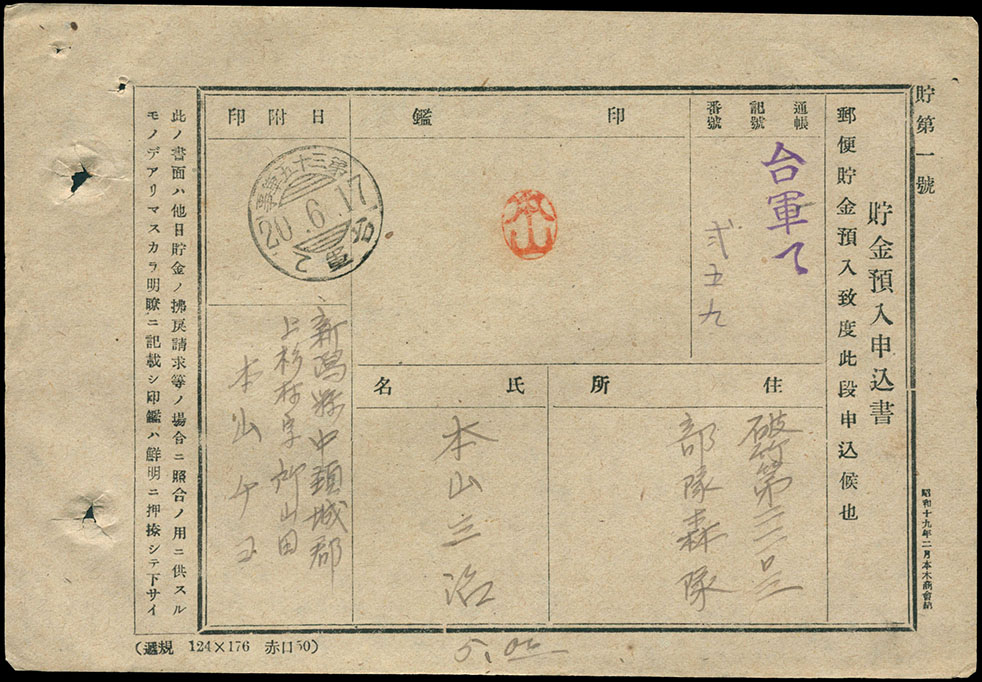 貯第一號
貯金預入申込書
郵便貯金預入致度此段申込候也
昭和十九年二月本木商會納
通帳
記號
番號
台軍て
弐五九
印鑑
本山
日附印
第三十五軍事
20.6.17
台軍乙
住所
破竹第三三号
部隊森隊
氏名
本山主治
新潟県中頚城郡
上杉村字所山田
本山ケ
此ノ書面ハ他日貯金ノ拂戻請求等ノ場合ニ照合ノ用ニ供スル
モノデアリマスカラ明瞭ニ記載シ印鑑ハ鮮明ニ押捺シテ下サイ
(遞規 124×176 赤口50)
5.00